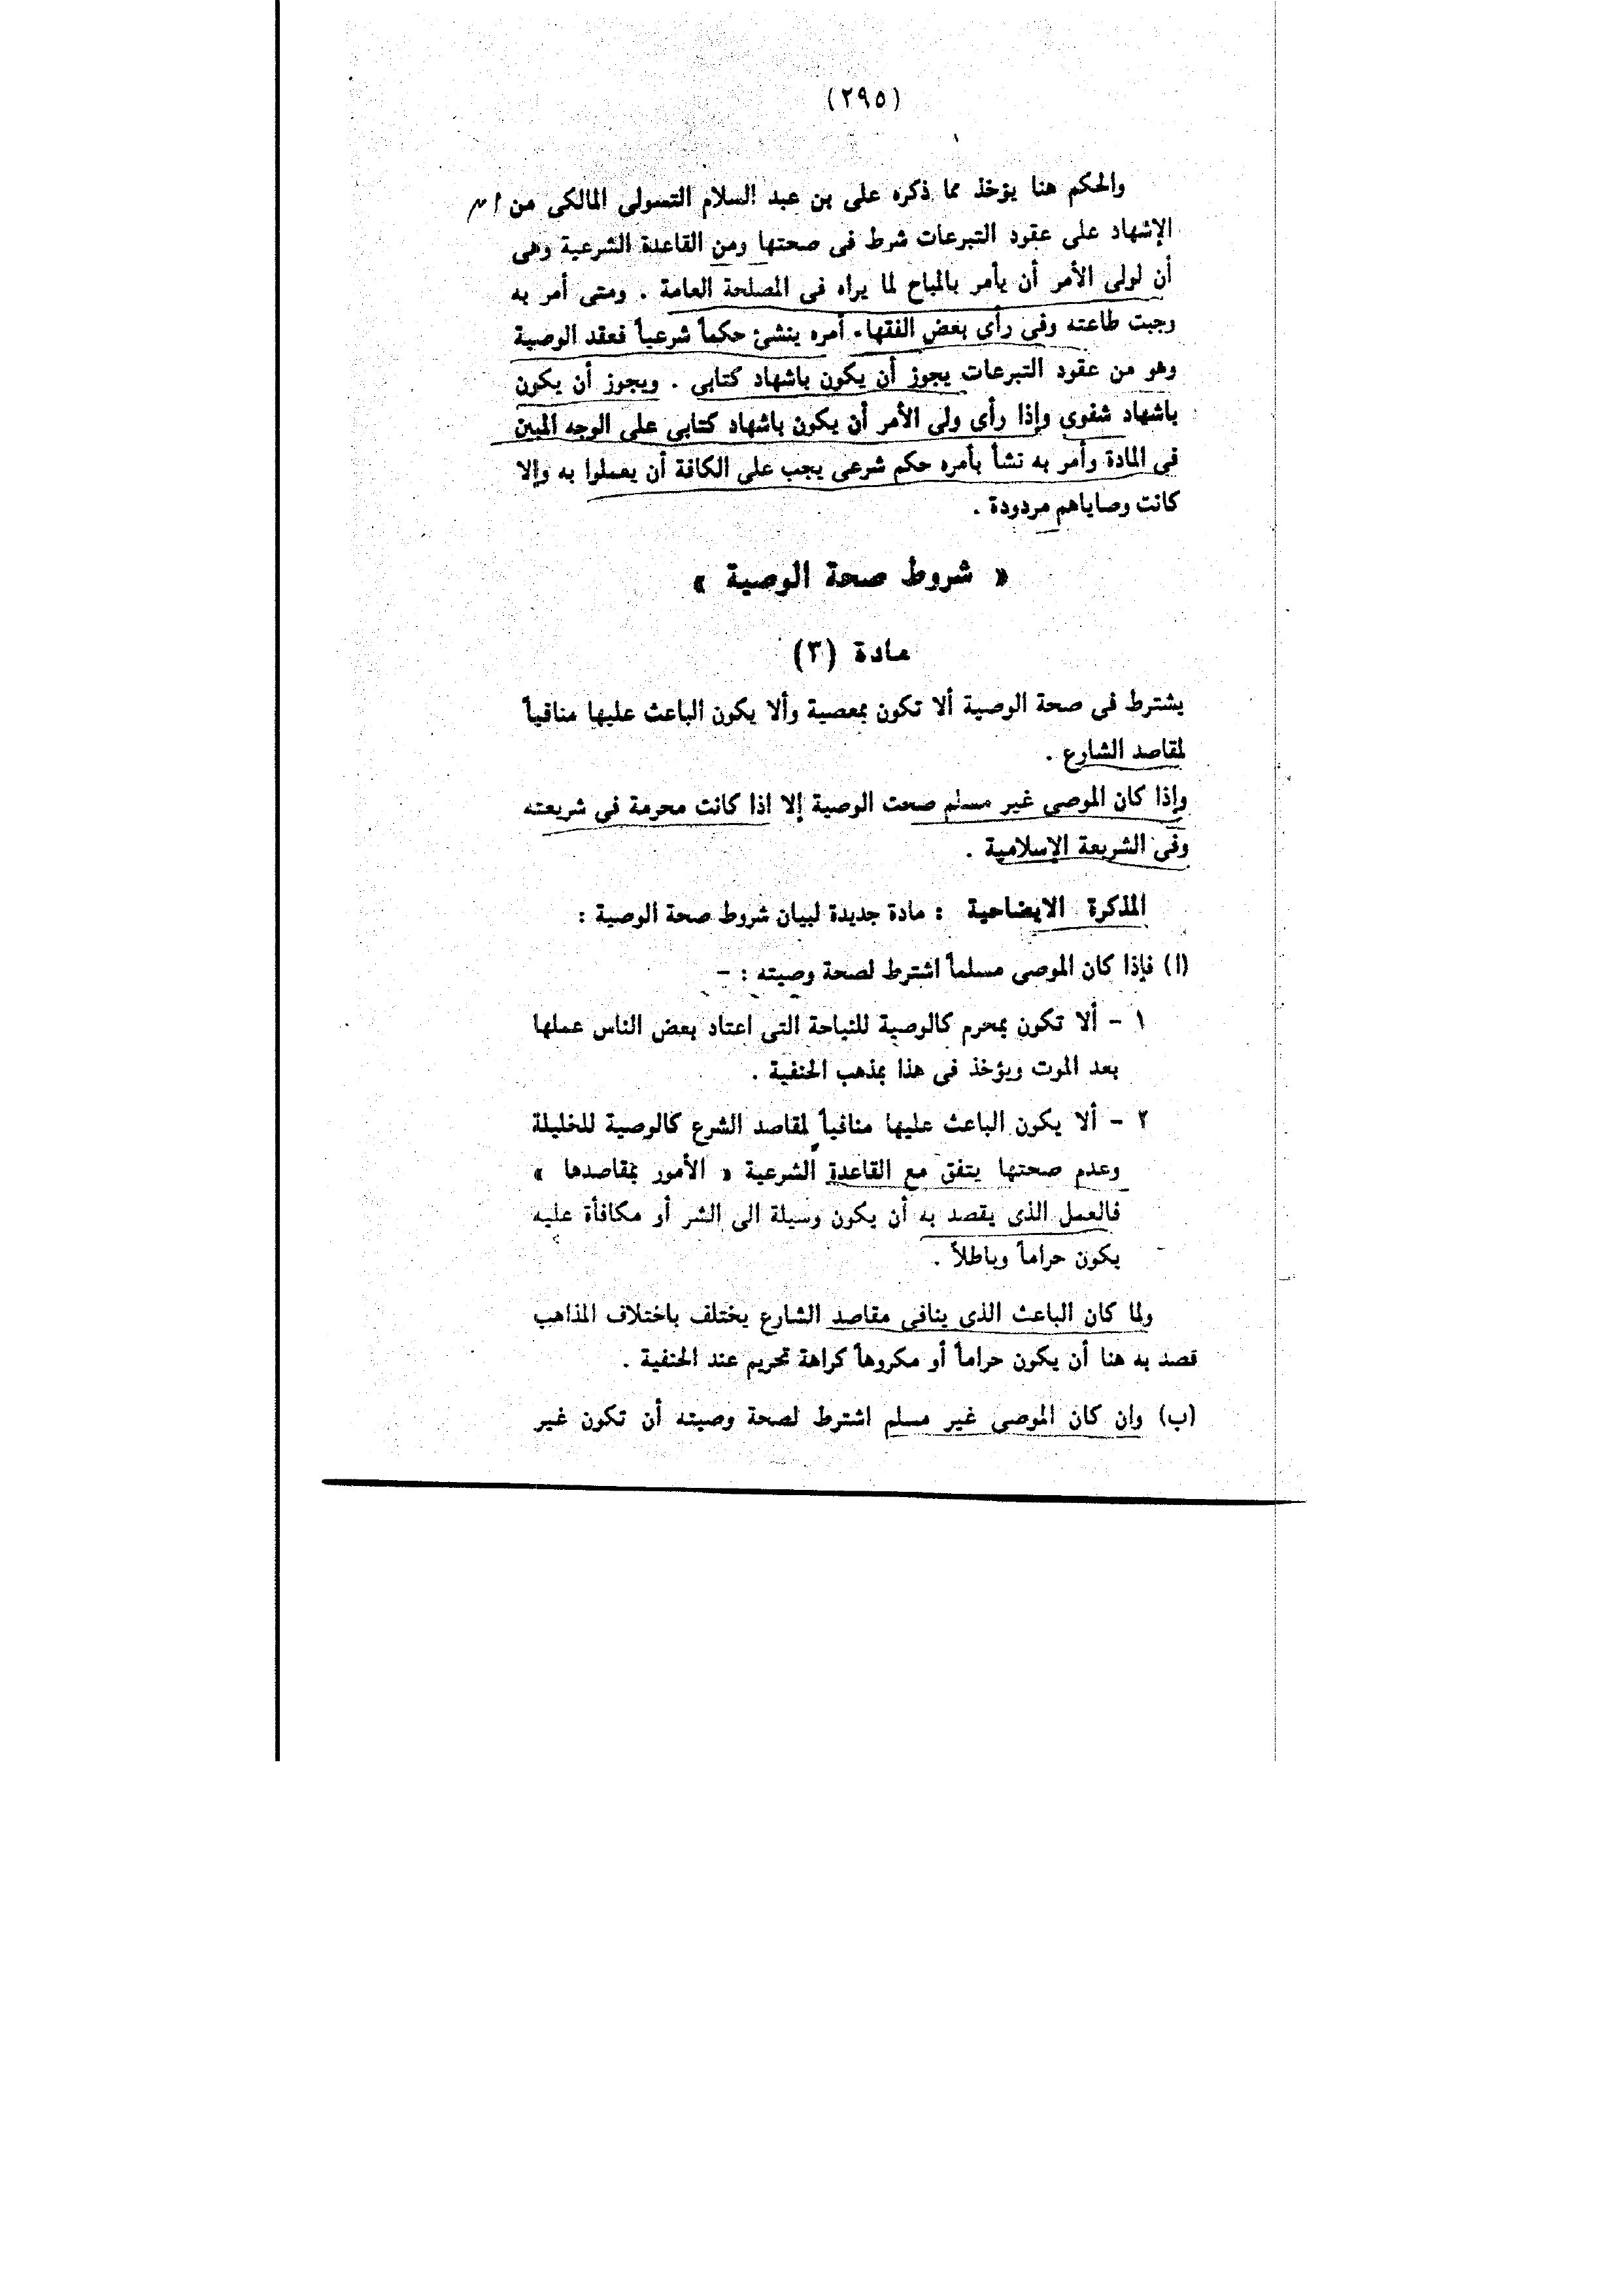 (٢٩٥)
والحكم هنا يؤخذ مما ذكره على بن عبد السلام التسولى المالكى من
الإشهاد على عقود التبرعات شرط فى صحتها ومن القاعدة الشرعية وهى
أن لولى الأمر أن يأمر بالمباح لما يراه فى المصلحة العامة . ومتى أمر به
وجبت طاعته وفى رأى بعض الفقهاء أمره ينشئ حكماً شرعياً فعقد الوصية
وهو من عقود التبرعات يجوز أن يكون باشهاد كتابى . ويجوز أن يكون
باشهاد شفوى وإذا رأى ولى الأمر أن يكون باشهاد كتابى على الوجه المبين
فى المادة وأمر به نشأ بأمره حكم شرعى يجب على الكافة أن يعملوا به وإلا
كانت وصاياهم مردودة .
« شروط صحة الوصية »
مادة (٣)
يشترط فى صحة الوصية ألا تكون بمعصية وألا يكون الباعث عليها منافياً
لمقاصد الشارع .
وإذا كان الموصى غير مسلم صحت الوصية إلا اذا كانت محرمة فى شريعته
وفى الشريعة الإسلامية .
المذكرة الايضاحية : مادة جديدة لبيان شروط صحة الوصية :
(ا) فإذا كان الموصى مسلماً اشترط لصحة وصيته : –
١ – ألا تكون بمحرم كالوصية للنياحة التى اعتاد بعض الناس عملها
بعد الموت ويؤخذ فى هذا بمذهب الحنفية .
٢ – ألا يكون الباعث عليها منافياً لمقاصد الشرع كالوصية للخليلة
وعدم صحتها يتفق مع القاعدة الشرعية « الأمور بمقاصدها »
فالعمل الذى يقصد به أن يكون وسيلة الى الشر أو مكافأة عليه
يكون حراماً وباطلاً .
ولما كان الباعث الذى ينافى مقاصد الشارع يختلف باختلاف المذاهب
قصد به هنا أن يكون حراماً أو مكروهاً كراهة تحريم عند الحنفية .
(ب) وان كان الموصى غير مسلم اشترط لصحة وصيته أن تكون غير